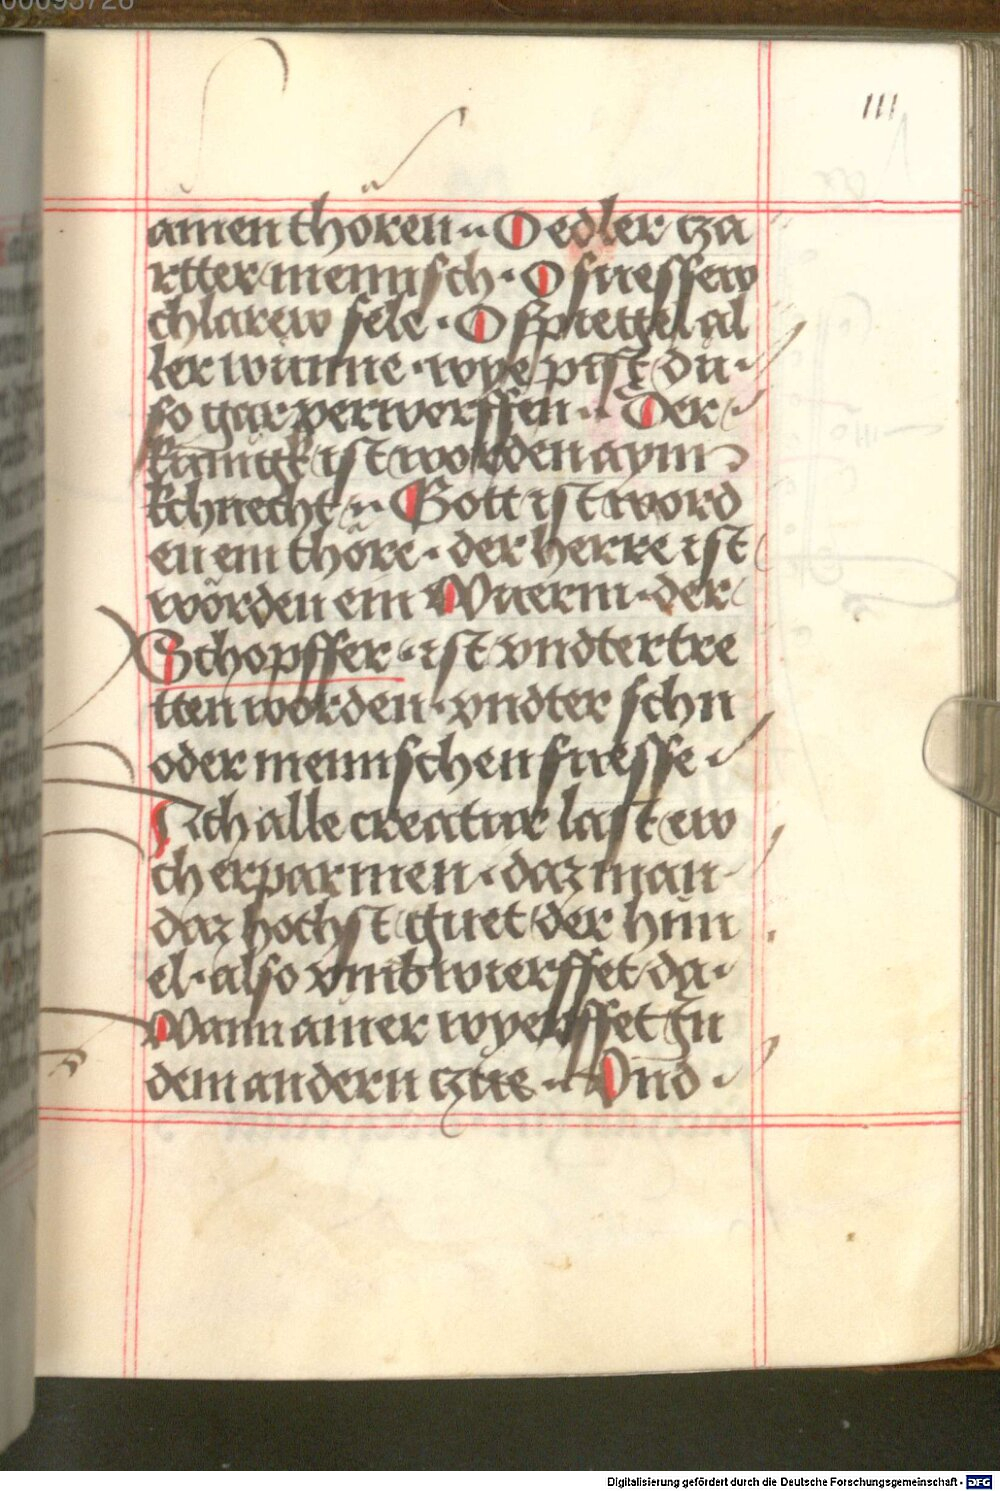 00095726
111
amen thoren ·· O edler tza
rtter mennsch · O suessew
chlarew sele · O spiegel al
ler wunne · wye pist du ·
so gar verworffen · Der
künigk ist worden aym
kchnecht ·· Gott ist word
en ein thore · der herre ist
worden ein Wuerm · der
Schopffer · ist vndtertre
tten worden · vndter schn
oder mennschen fuesse ·
Ach alle creatur last ew
ch erparmen · daz man
daz hochst guet der him
el · also vmbwierffet da ·
Wann ainer wyerffet In
dem andern tzue ·· Vnd ·
Digitalisierung gefördert durch die Deutsche Forschungsgemeinschaft - DFG